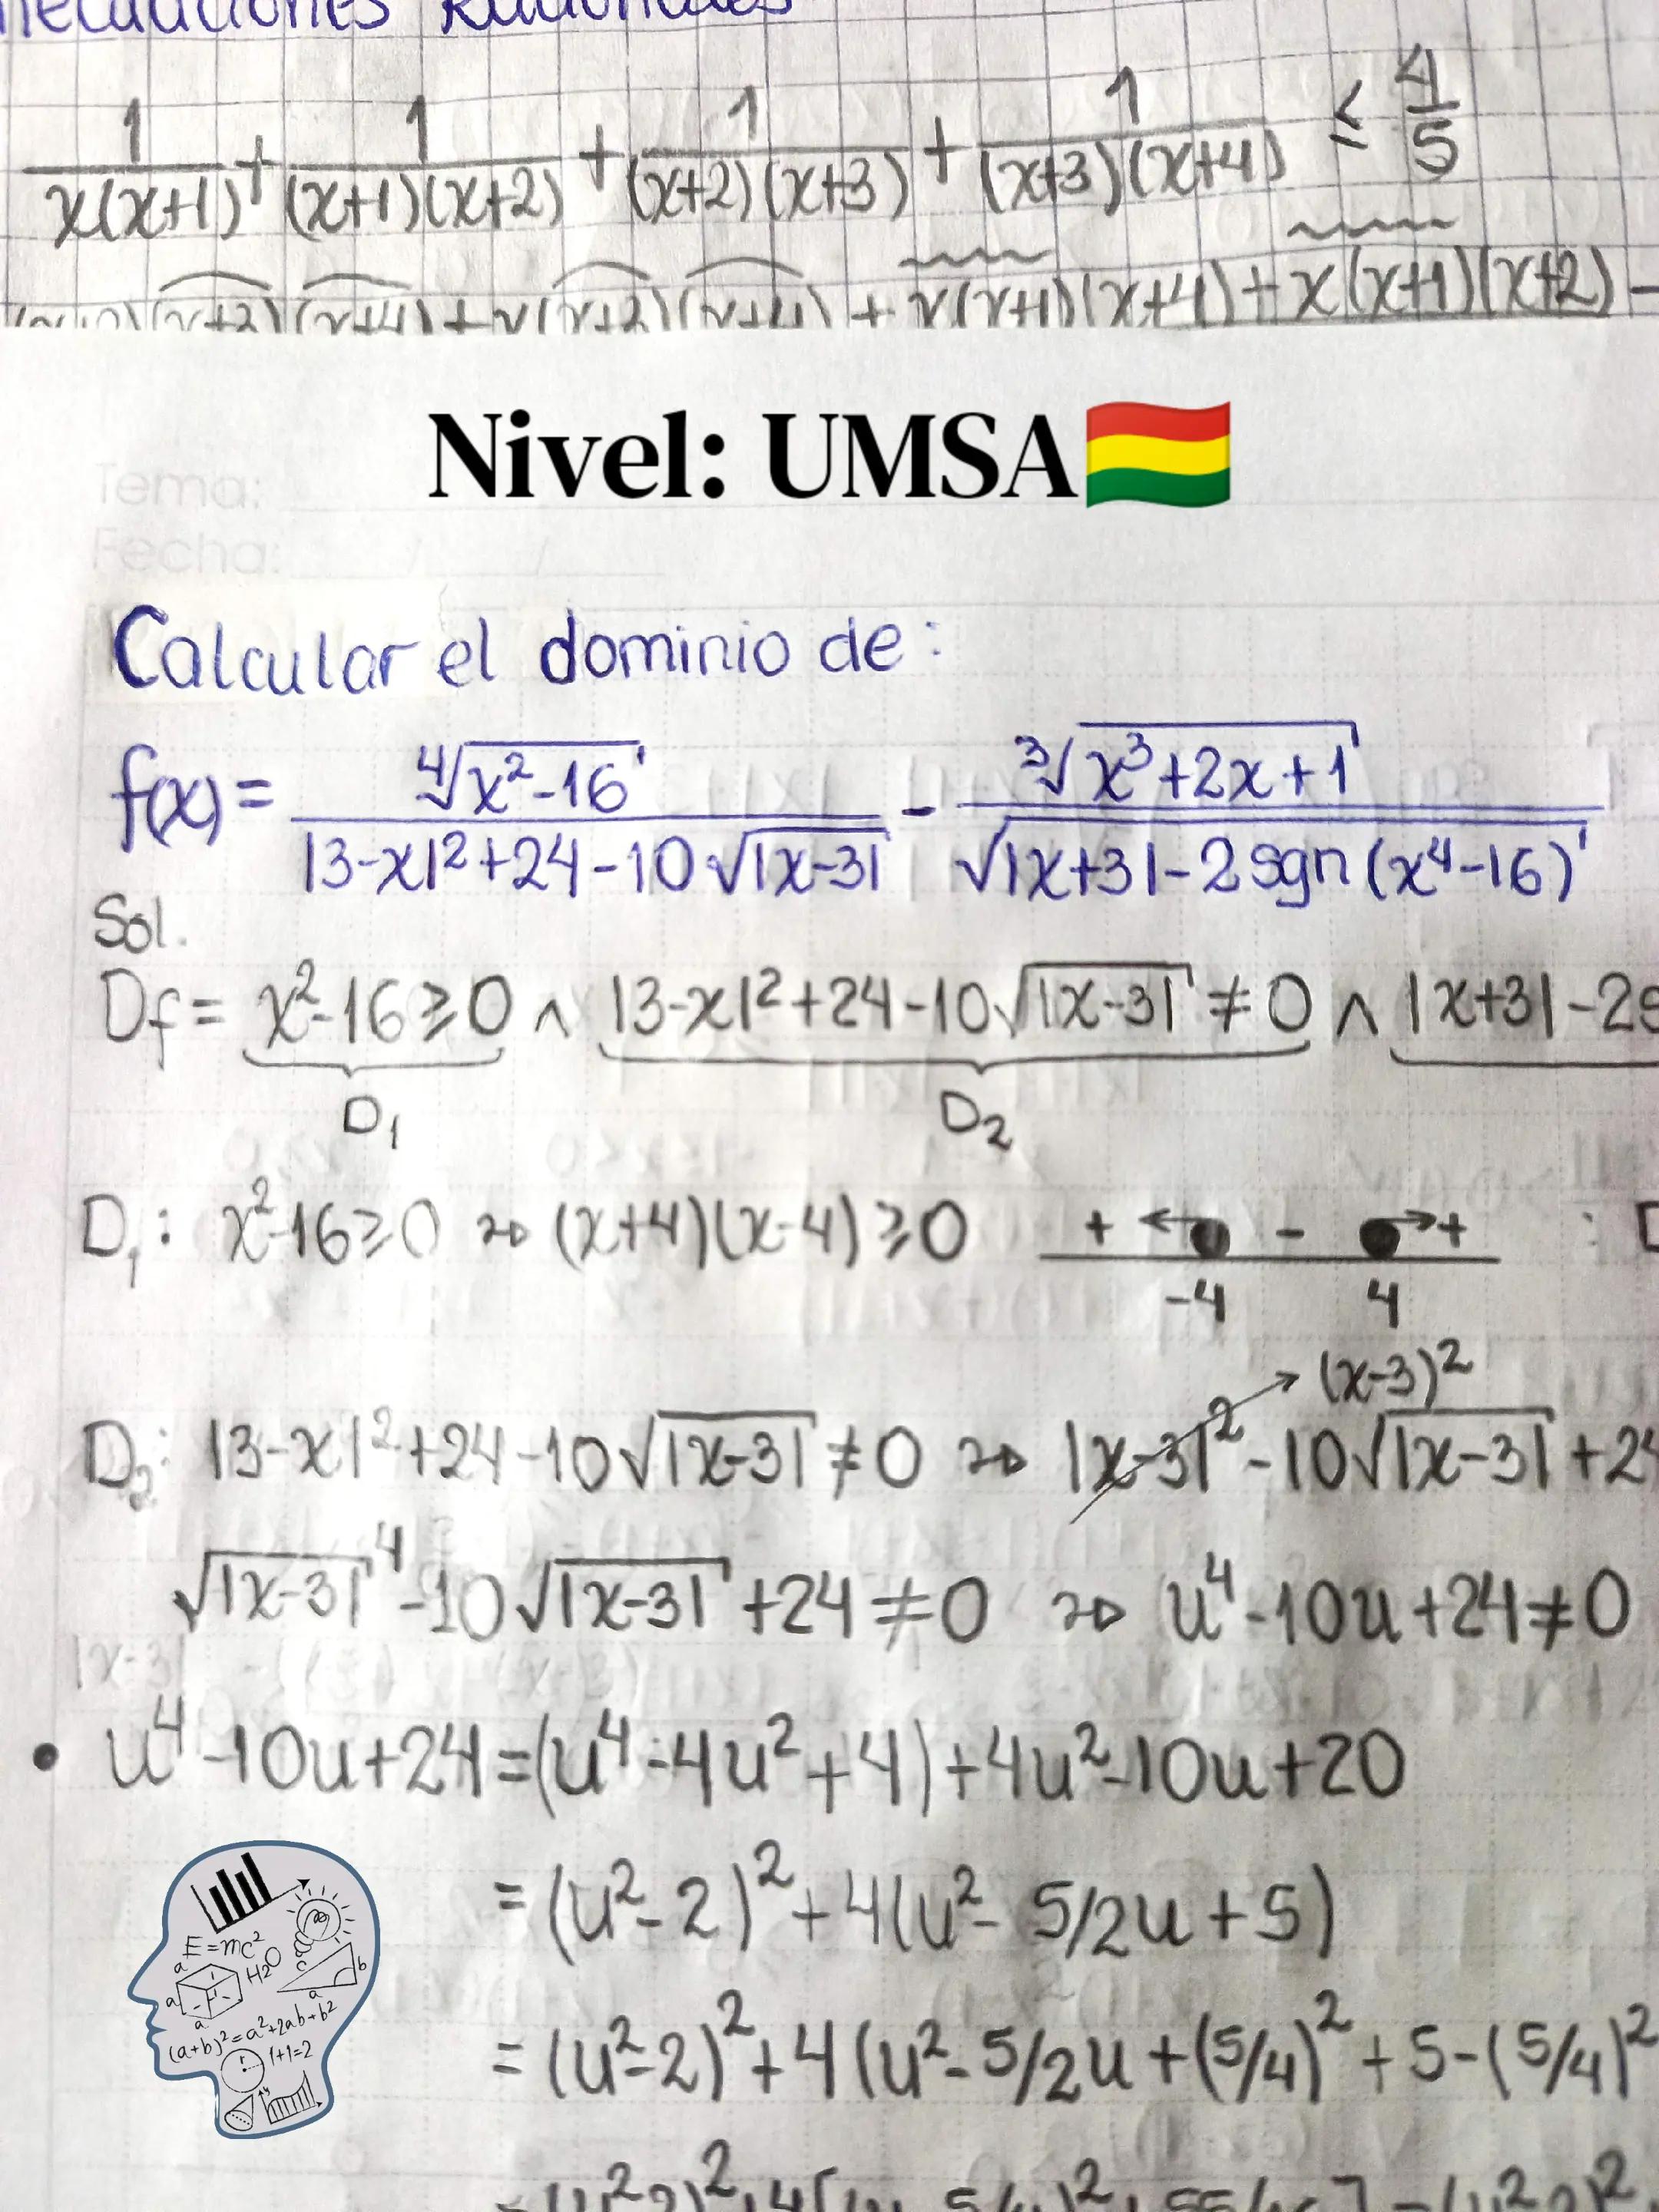 Inecuaciones Racionales
1/(x(x+1)) + 1/((x+1)(x+2)) + 1/((x+2)(x+3)) + 1/((x+3)(x+4)) ≤ 4/5
(x+3)(x+4) + x(x+3)(x+4) + x(x+1)(x+4) + x(x+1)(x+2) -
Nivel: UMSA🇧🇴
Tema:
Fecha: / /
Calcular el dominio de:
f(x) = ⁴√(x²-16) / (|3-x|²+24-10√|x-3|) - ³√(x³+2x+1) / √(|x+3|-2sgn(x⁴-16))
Sol.
Df = x²-16≥0 ∧ |3-x|²+24-10√|x-3| ≠ 0 ∧ |x+3|-2s
D₁ D₂
D₁: x²-16≥0 ⇝ (x+4)(x-4)≥0 + - + : D
-4 4
(x-3)²
D₂: |3-x|²+24-10√|x-3| ≠ 0 ⇝ |x-3|²-10√|x-3|+24
√|x-3|⁴-10√|x-3|+24≠0 ⇝ u⁴-10u+24≠0
|x-3|
• u⁴-10u+24=(u⁴-4u²+4)+4u²-10u+20
=(u²-2)²+4(u²-5/2u+5)
=(u²-2)²+4(u²-5/2u+(5/4)²+5-(5/4)²
E=mc²
H2O
a c b
a a a a
(a+b)²=a²+2ab+b²
r 1+1=2